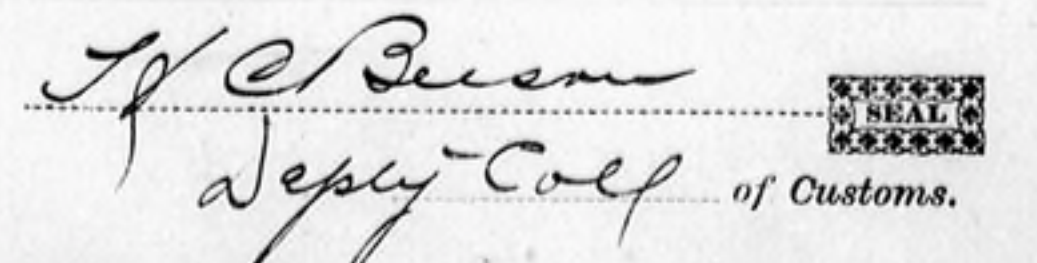 H C Beeson
SEAL
Deputy Coll of Customs.